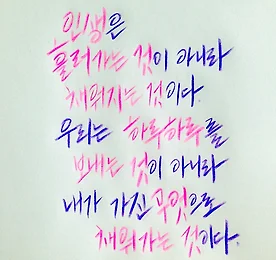 인생은
흘러가는 것이 아니라
채워지는 것이다.
우리는 하루하루를
보내는 것이 아니라
내가 가진 무엇으로
채워가는 것이다.